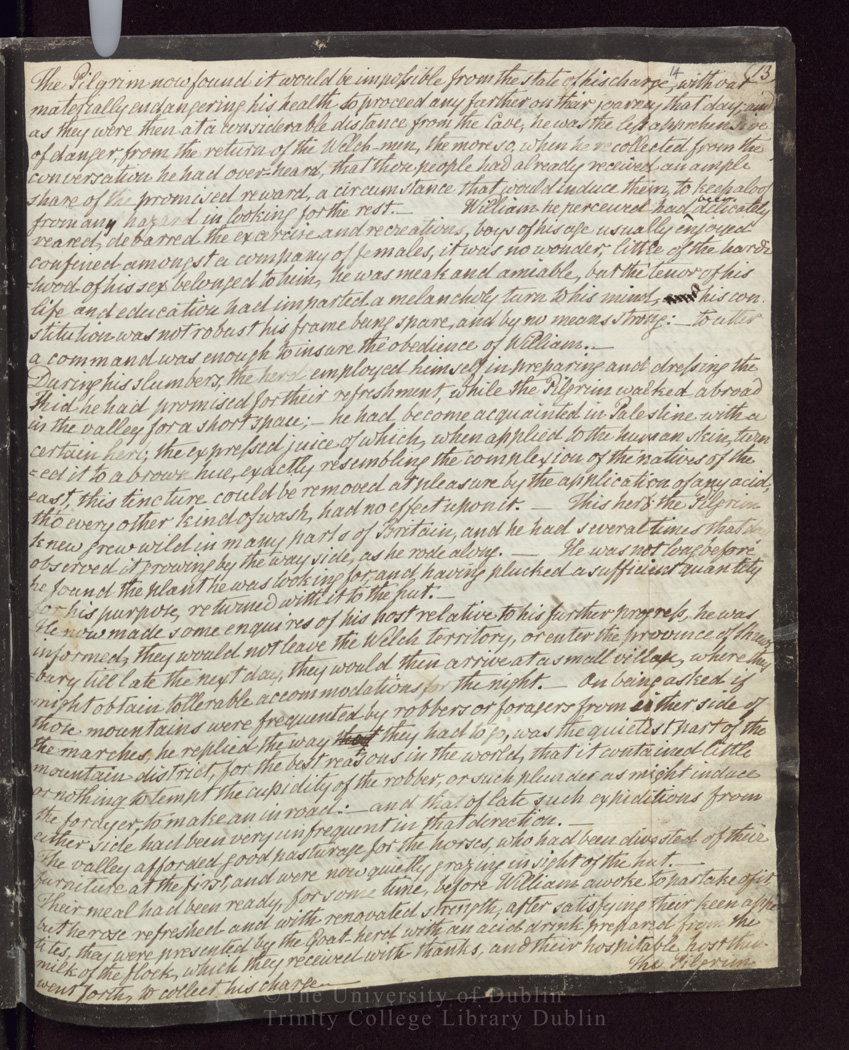 14 (13
The Pilgrim now found it would be impossible from the state of his charge, with out
materially endangering his health to proceed any farther on their journey that day, and
as they were then at a considerable distance from the Cave, he was the less apprehensive
of danger from the return of the Welch-men, the more so, when he recollected from the
conversation he had over-heard, that those people had already received an ample
share of the promised reward, a circumstance that would induce them, to keep aloof
from any hazard in looking for the rest. — William he perceived had been delicately
reared, debarred the exercise and recreations, boys of his age usually enjoyed
confined amongst a company of females, it was no wonder, little of the hardi
-hood of his sex belonged to him, he was meak and amiable, but the tenor of his
life and education had imparted a melancholy turn to his mind, his con-
stitution was not robust his frame being spare, and by no means strong: — to utter
a command was enough to insure the obedience of William. —
During his slumbers, the herd employed himself in preparing and dressing the
Kid he had promised for their refreshment, while the Pilgrim walked abroad
in the valley for a short space; — he had become acquainted in Palestine with a
certain herb, the expressed juice of which, when applied to the human skin, turn
=ed it to a brown hue, exactly resembling the complexion of the natives of the
east, this tincture could be removed at pleasure by the application of any acid,
tho' every other kind of wash, had no effect upon it. — This herb the Pilgrim
knew grew wild in many parts of Britain, and he had several times that day
observed it growing by the way side, as he rode along. — He was not long before
he found the plant he was looking for, and having plucked a sufficient quantity
for his purpose, returned with it to the hut. —
He now made some enquires of his host relative to his further progress, he was
informed, they would not leave the Welch territory, or enter the province of Shrews
=bury till late the next day, they would then arrive at a small village, where they
might obtain tollerable accommodations for the night. — On being asked if
those mountains were frequented by robbers or foragers from either side of
the marches, he replied the way they had to go, was the quietest part of the
mountain district, for the best reasons in the world, that it contained little
or nothing to tempt the cupidity of the robber, or such plunder as might induce
the forayer, to make an inroad: — and that of late such expiditions from
either side had been very unfrequent in that direction. —
The valley afforded good pasturage for the horses, who had been divested of their
furniture at the first, and were now quietly grazing in sight of the hut. —
Their meal had been ready for some time, before William awoke to partake of it
but he rose refreshed and with renovated strength, after satisfying their keen appe
tites, they were presented by the Goat-herd with an acid drink prepared from the
milk of the flock, which they received with thanks, and their hospitable host then
went forth, to collect his charge. —
The Pilgrim
©The University of Dublin
Trinity College Library Dublin